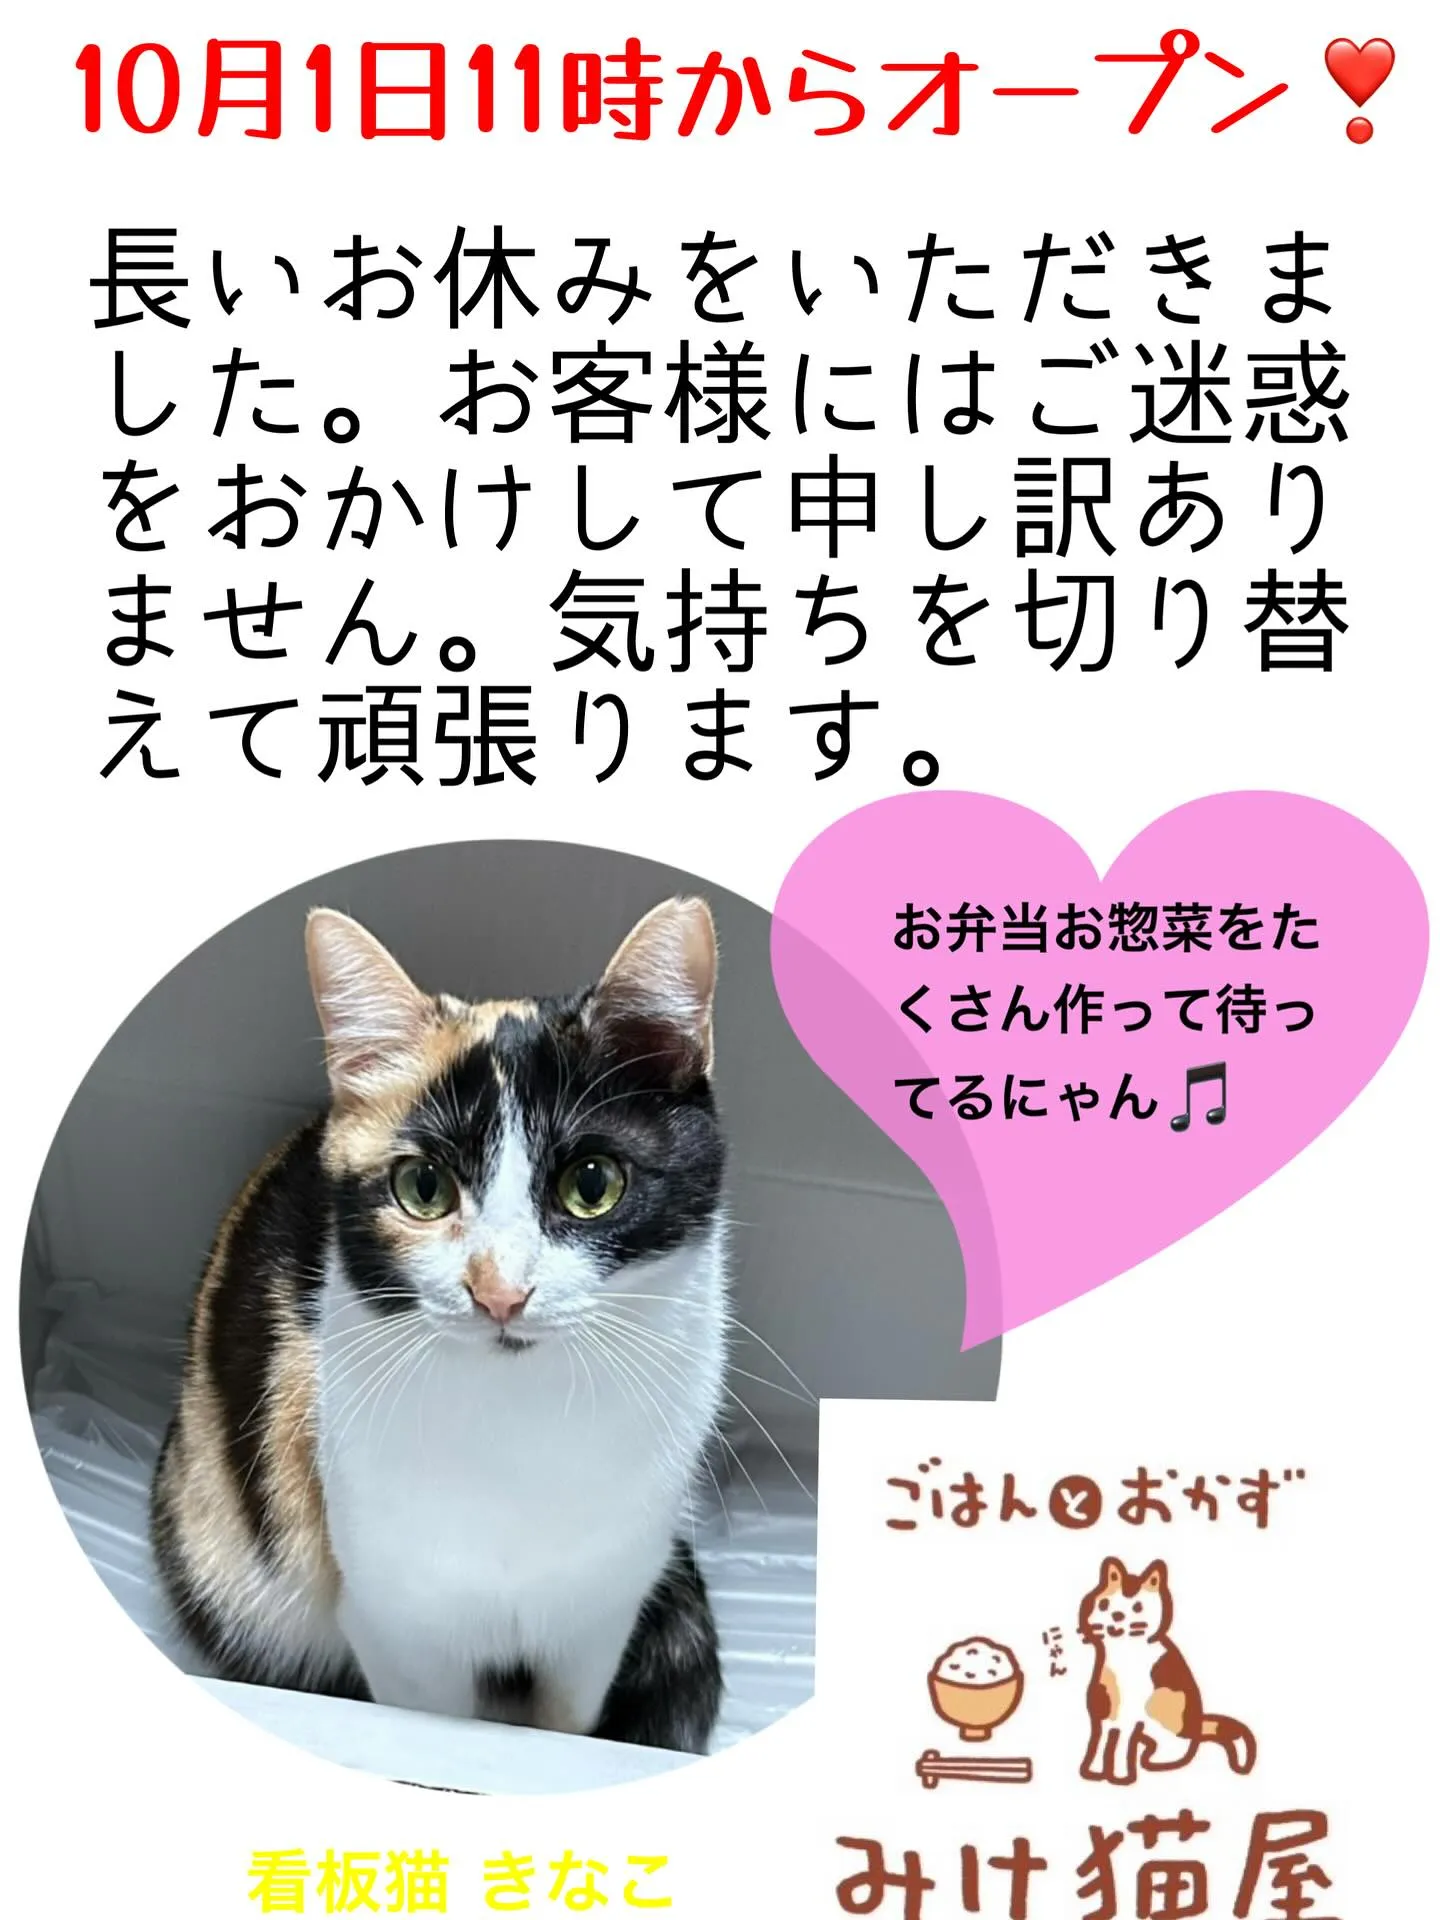 10月1日11時からオープン❣️
長いお休みをいただきま
した。お客様にはご迷惑
をおかけして申し訳あり
ません。気持ちを切り替
えて頑張ります。
お弁当お惣菜をた
くさん作って待っ
てるにゃん🎵
ごはんとおかず
にゃん
みけ猫屋
看板猫 きなこ